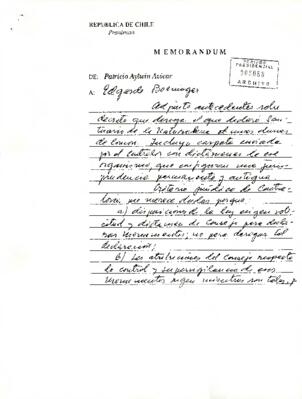 REPUBLICA DE CHILE
Presidencia
MEMORANDUM
PERIODO
PRESIDENCIAL
ARCHIVO
DE: Patricio Aylwin Azócar
A: Edgardo Boeninger
Adjunto antecedentes sobre
decreto que deroga el que declaró San-
tuario de la Naturaleza dunas
de Concón. Incluyo carpeta enviada
por el Contralor con dictámenes de ese
organismo, que configuran una juris-
prudencia permanente y antigua.
Criterio jurídico de Contra-
loría me merece dudas porque:
a) disposiciones de la ley exigen soli-
citud y dictamen de Consejo para decla-
rar monumentos; no para derogar tal
declaración;
b) Las atribuciones del Consejo respecto
de control y supervigilancia de esos
monumentos rigen mientras son tales,